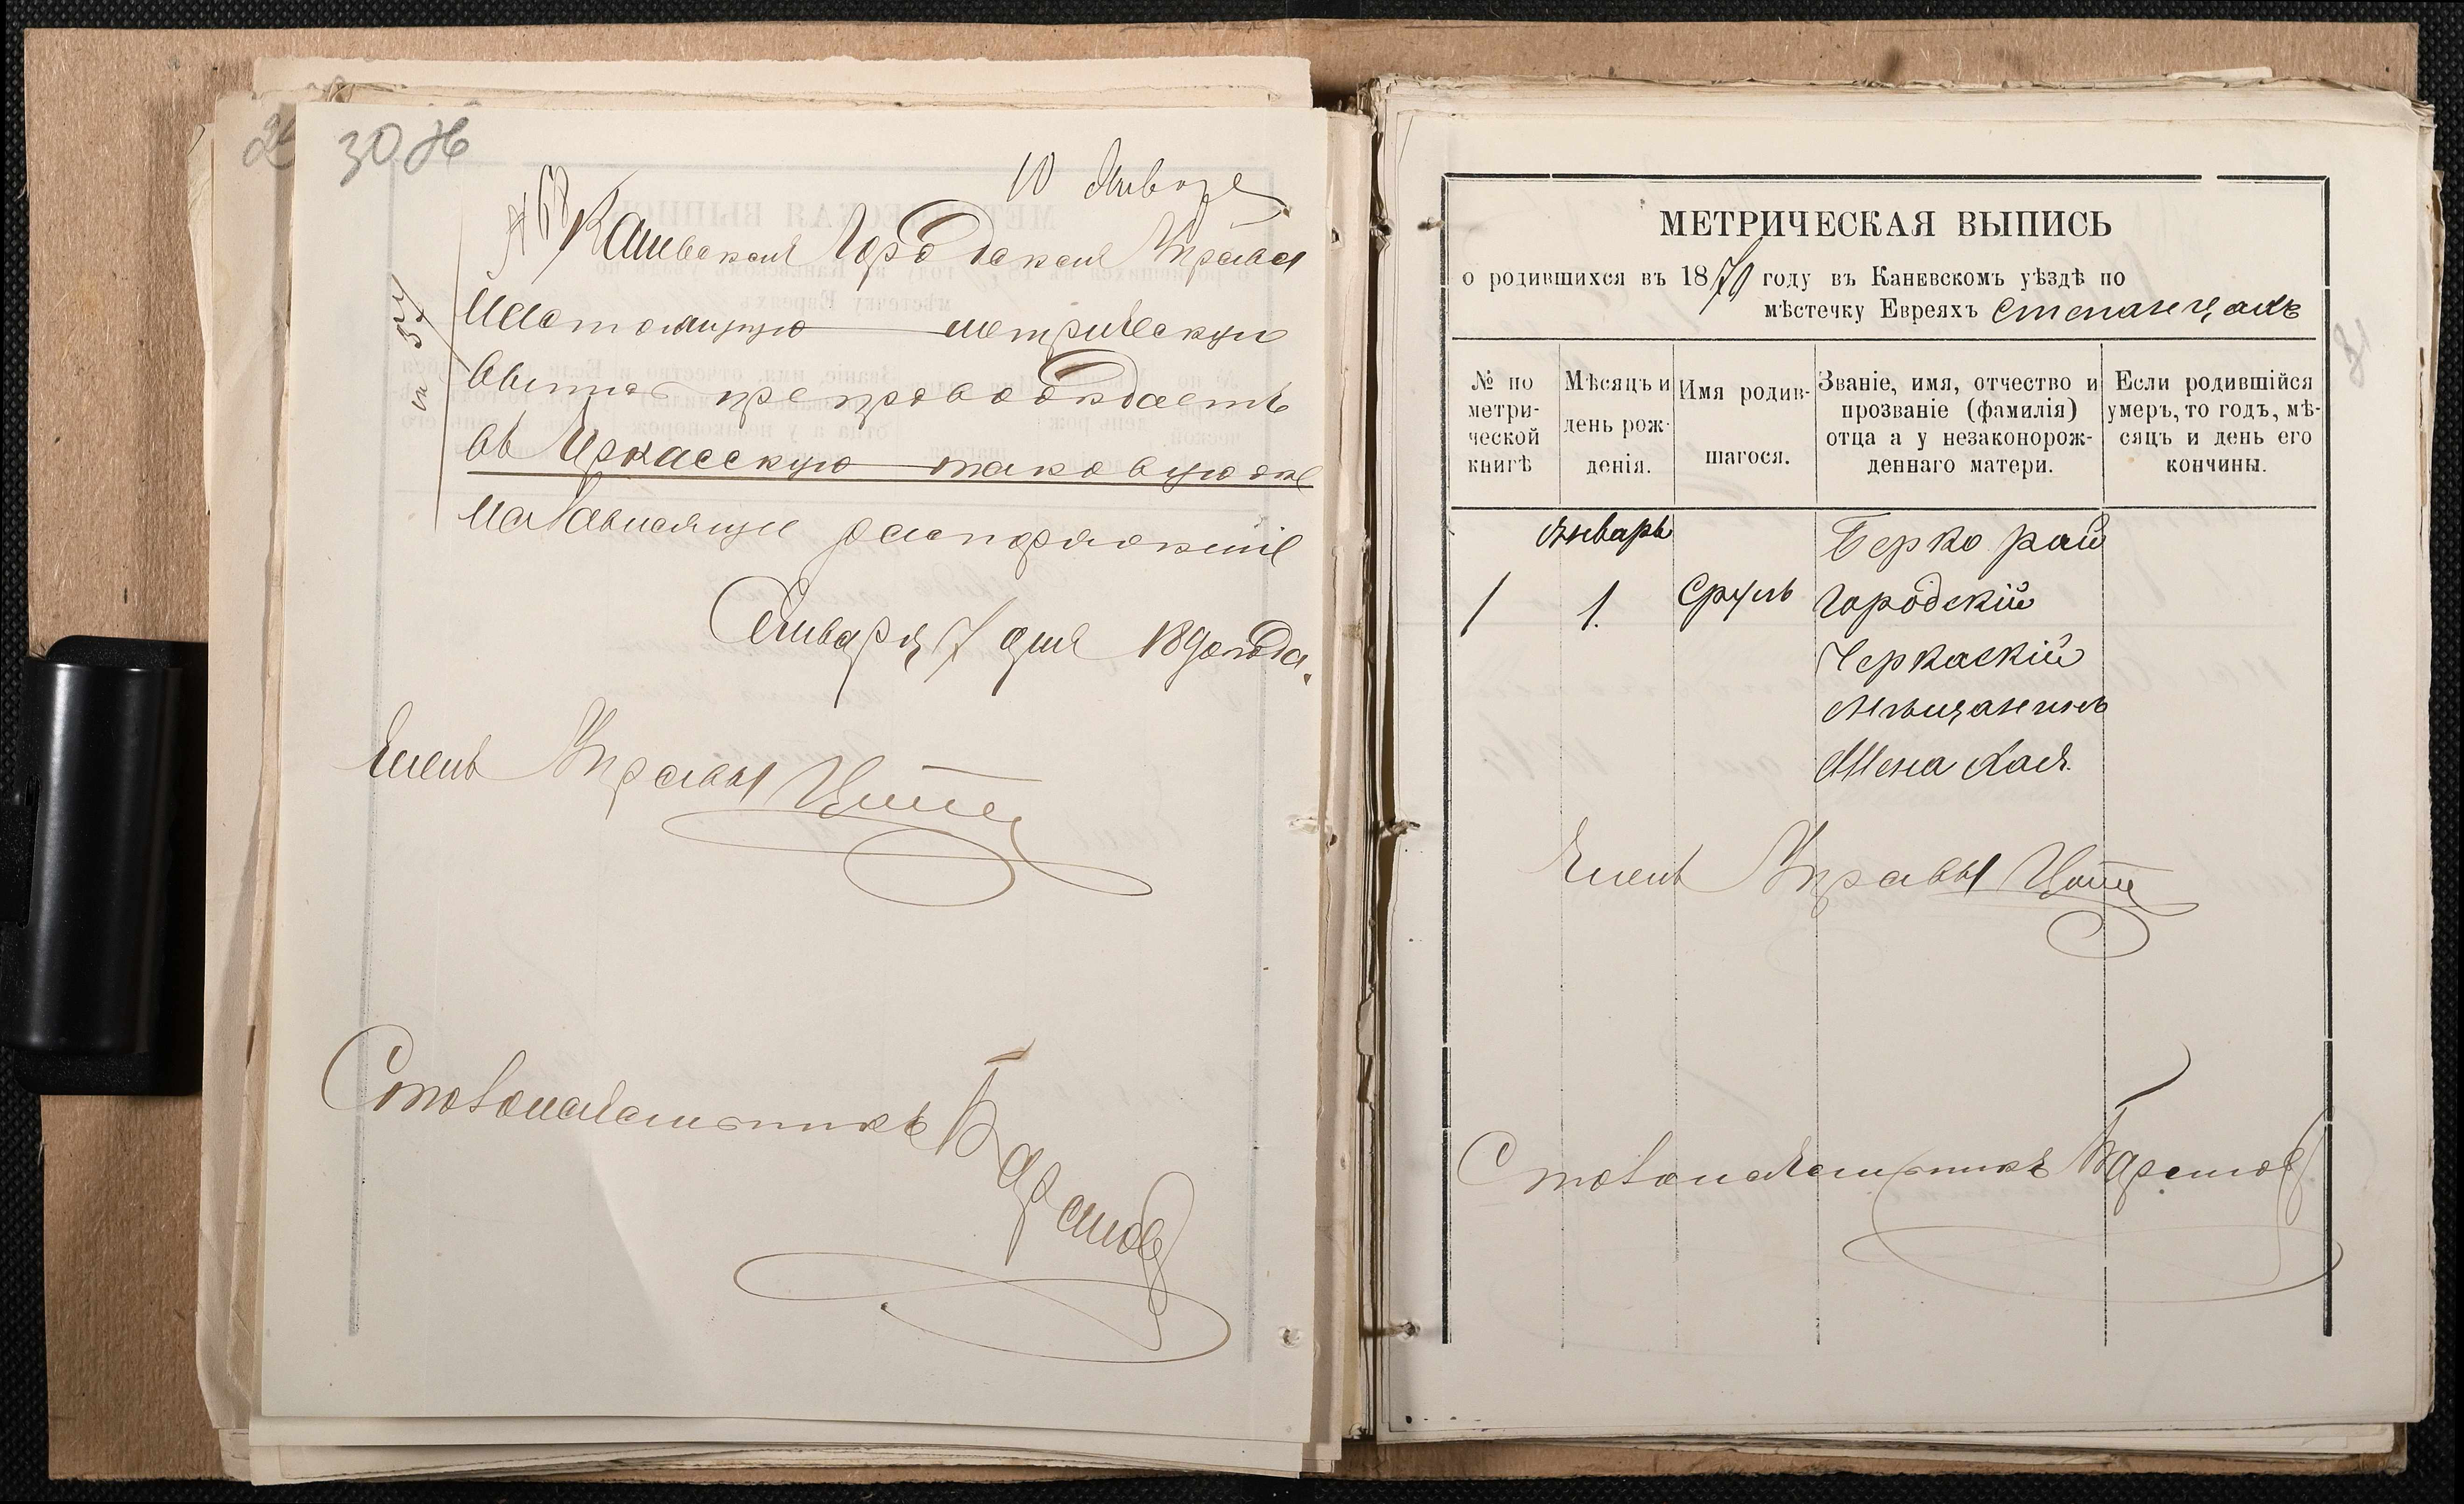 30 Ж
10 Января
№ 68
Каневская Городская Управа
настоящую метрическую
выпись препровождаетъ
въ Черкасскую таковую же
на зависящее распоряженіе
Января 7 дня 1890 года.
Членъ Управы
Столоначальникъ Барановъ
МЕТРИЧЕСКАЯ ВЫПИСЬ
о родившихся въ 1870 году въ Каневскомъ уѣздѣ по
мѣстечку Евреяхъ Степанцамъ
№ по метрической книгѣ
Мѣсяцъ и день рожденія.
Имя родившагося.
Званіе, имя, отчество и прозваніе (фамилія) отца а у незаконорожденнаго матери.
Если родившійся умеръ, то годъ, мѣсяцъ и день его кончины.
Январь Берко Рай
1 1. Сруль Городскій
Черкаскій
Мѣщанинъ
Жена Хая.
Членъ Управы
Столоначальникъ Барановъ